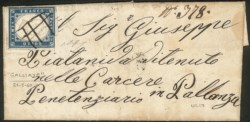 N. 378.
Al Sig. Giuseppe
Piatanida ditenuto
nelle Carcere
Penetenziario in Pallanza